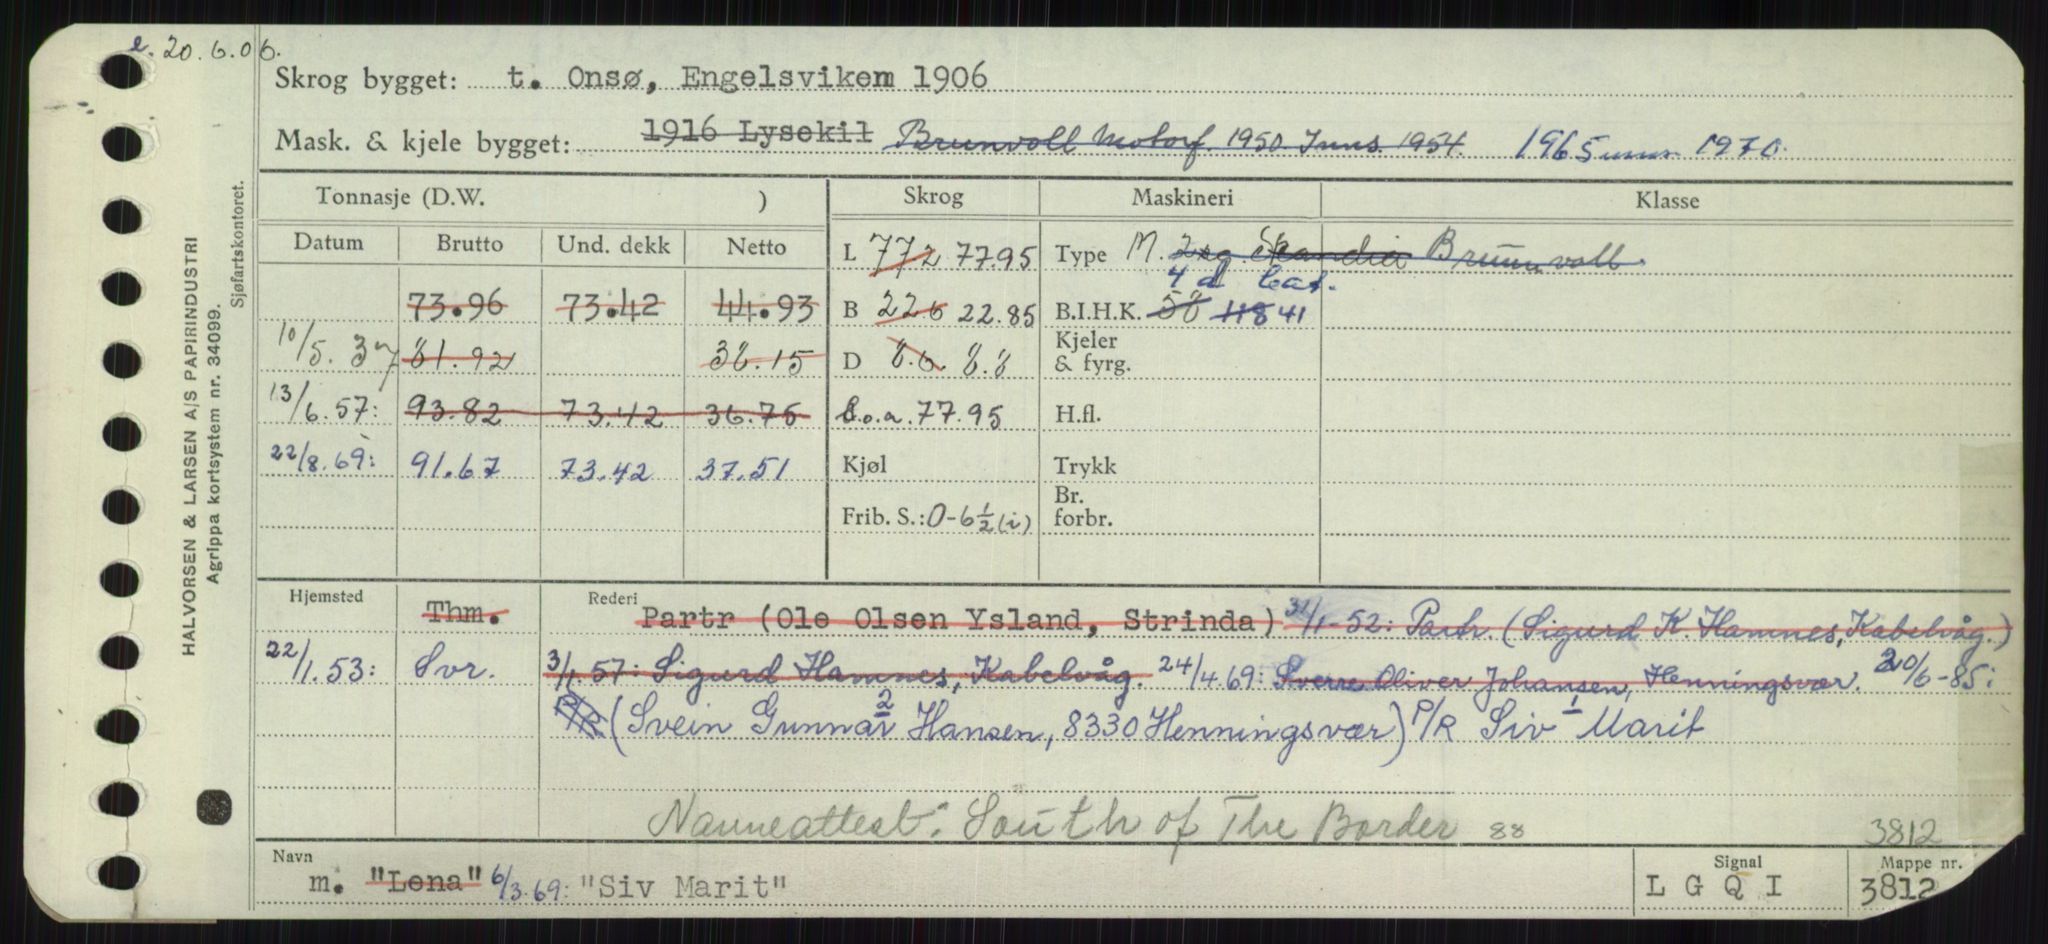 e. 20.6.06.
Skrog bygget: t. Onsø, Engelsviken 1906
Mask. & kjele bygget: 1916 Lysekil Brunvoll Motorf. 1950 Inns. 1954. 1965 inns. 1970.
Tonnasje (D.W. ) Skrog Maskineri Klasse
Datum Brutto Und. dekk Netto
L 772 77.95 Type M. 2sg. Skandia Brunvoll.
4 d
73.96 73.42 44.93 B 226 22.85 B.I.H.K. 58 118 41
10/5.37 81.92 38.15 D 8.6. 8.8 Kjeler & fyrg.
13/6.57: 93.82 73.42 36.75 L.o.a. 77.95 H.fl.
22/8.69: 91.67 73.42 37.51 Kjøl Trykk
Frib. S.: 0-6½(i) Br. forbr.
Hjemsted Thm. Rederi Partr (Ole Olsen Ysland, Strinda) 31/1-52: Partr. (Sigurd K. Hamnes, Kabelvåg.)
22/1.53: Svr. 3/1.57: Sigurd Hamnes, Kabelvåg. 24/4.69: Sverre Oliver Johansen, Henningsvær. 20/6-85:
P/R (Svein Gunnar Hansen, 8330 Henningsvær) P/R Siv Marit
2 1
Navneattest: South of The Border 88
3812
Navn m. "Lena" 6/3.69: "Siv Marit" Signal L G Q I Mappe nr. 3812
HALVORSEN & LARSEN A/S PAPIRINDUSTRI
Agrippa kortsystem nr. 34099.
Sjøfartskontoret.